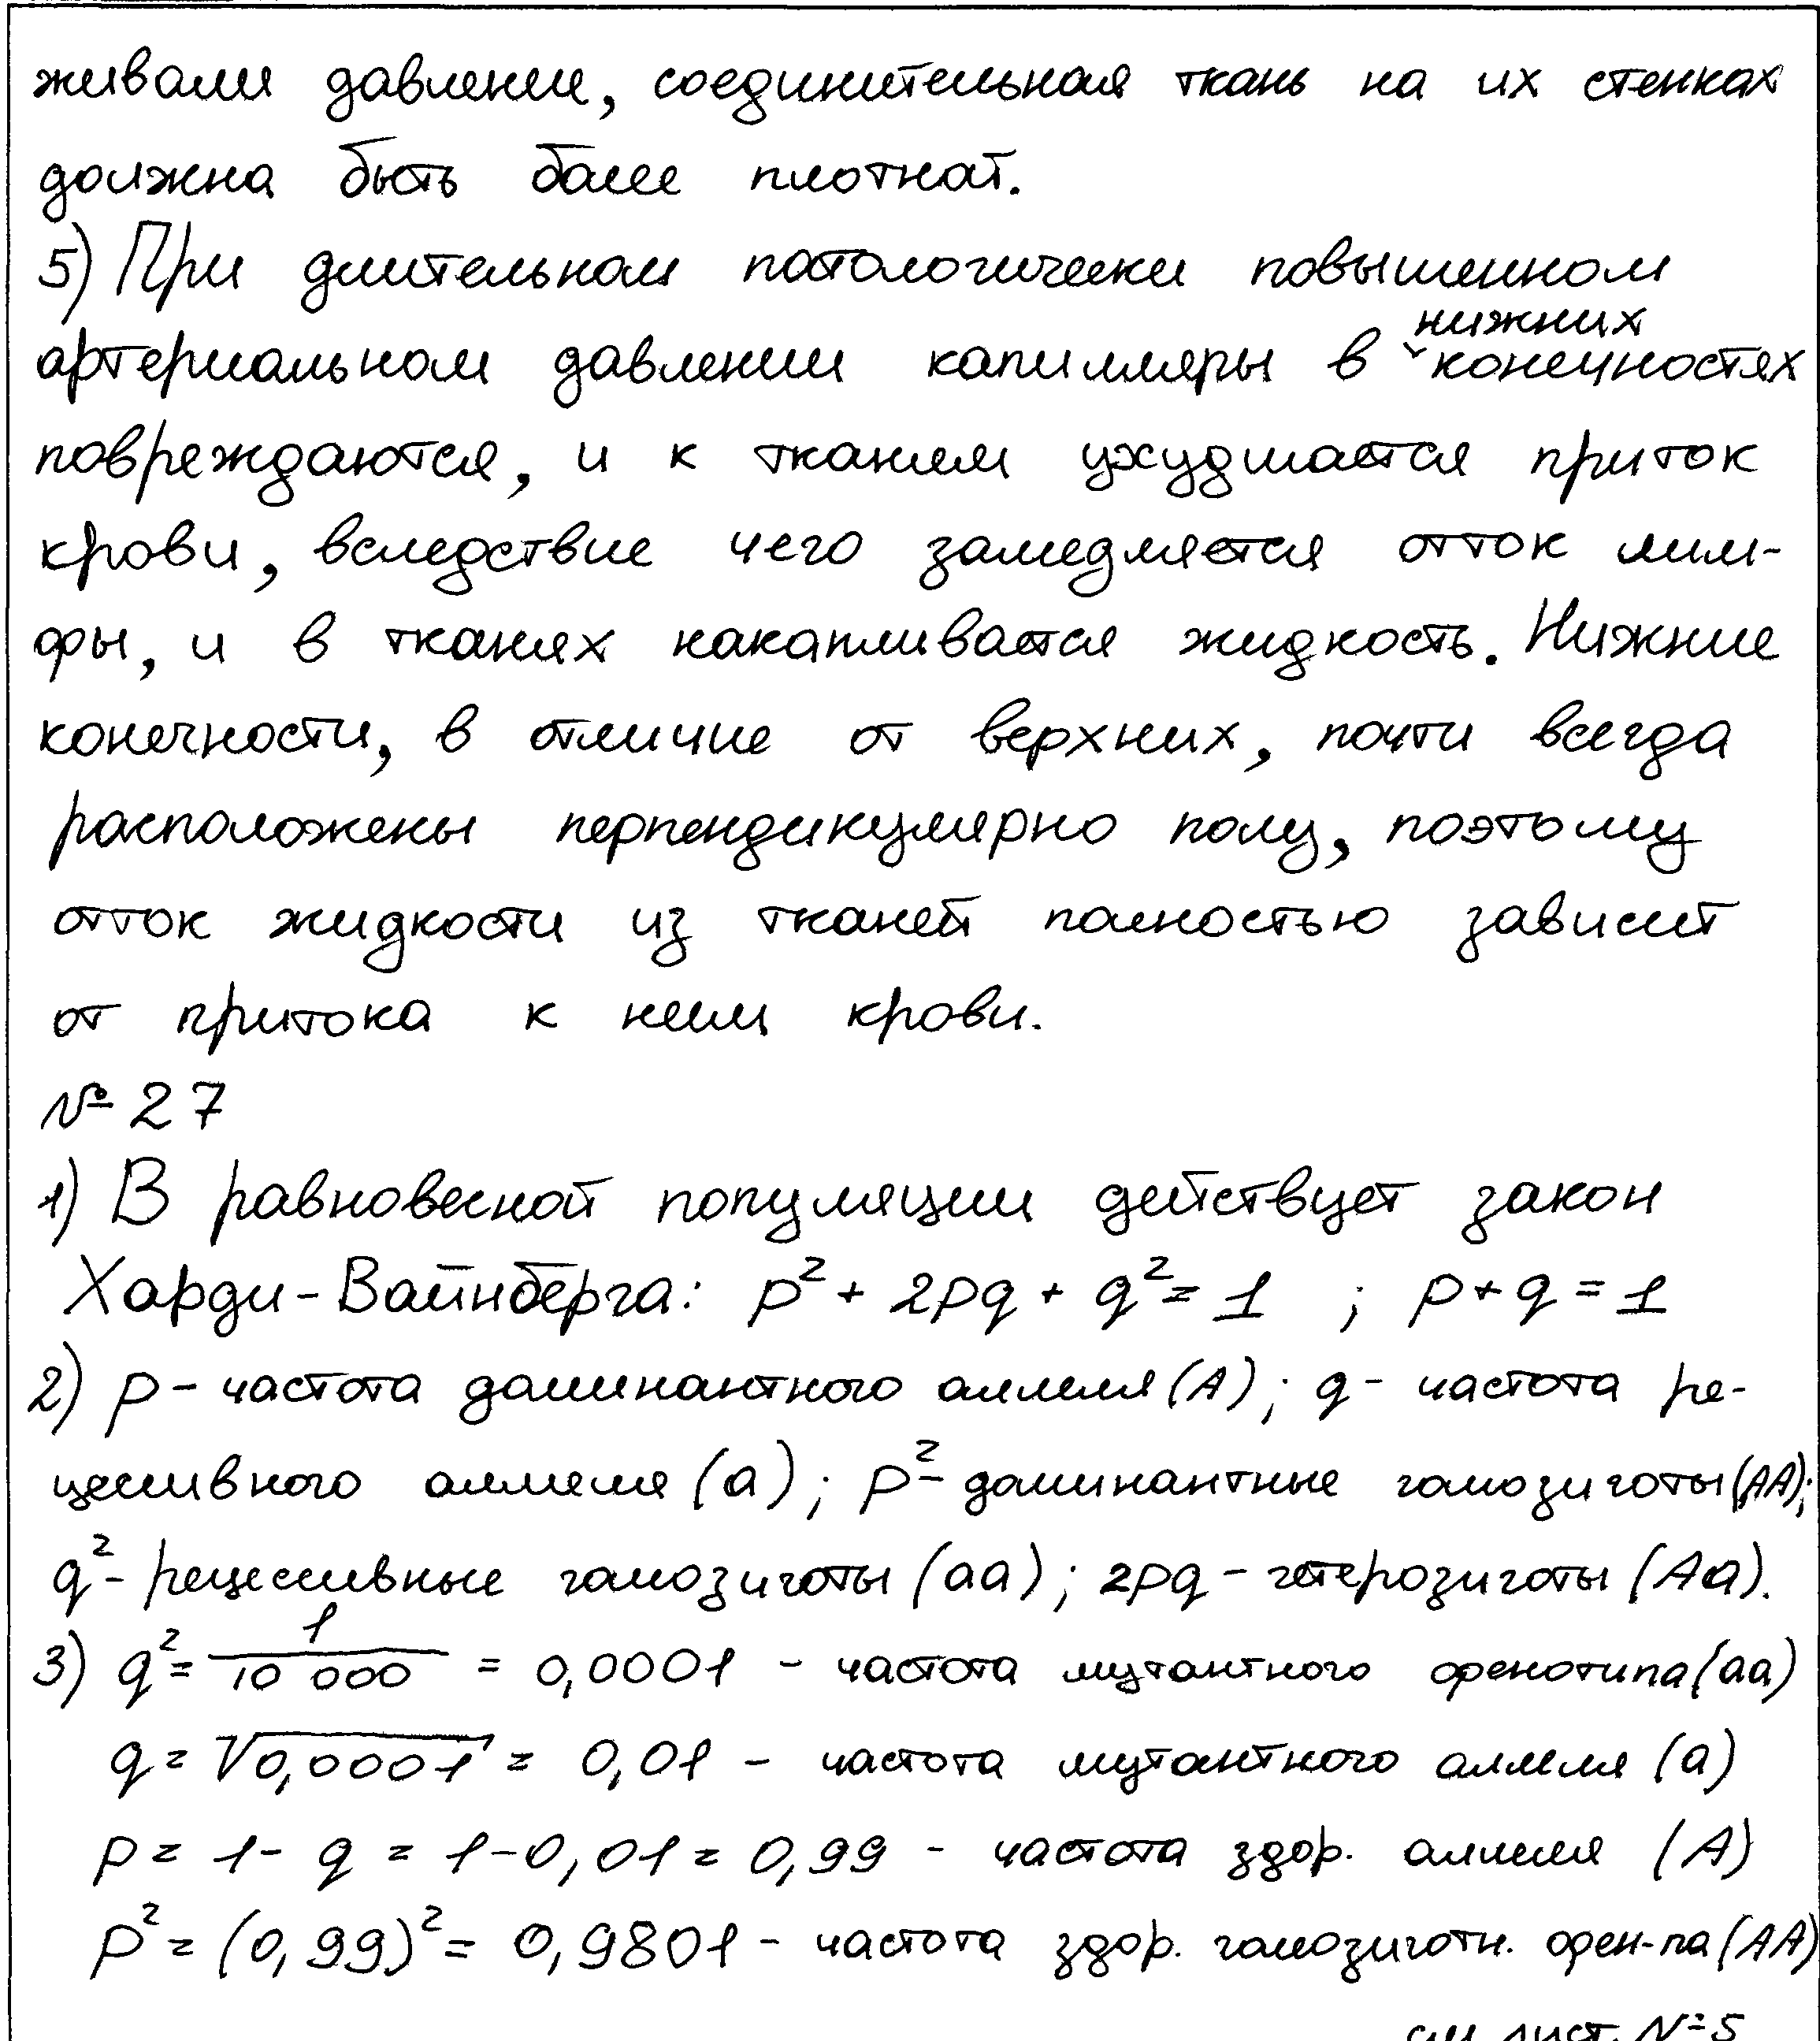 живали давление, соединительная ткань на их стенках
должна быть более плотной.
5) При длительном патологически повышенном
артериальном давлении капилляры в нижних конечностях
повреждаются, и к тканям ухудшается приток
крови, вследствие чего замедляется отток лим-
фы, и в тканях накапливается жидкость. Нижние
конечности, в отличие от верхних, почти всегда
расположены перпендикулярно полу, поэтому
отток жидкости из тканей полностью зависит
от притока к ним крови.
№ 27
1) В равновесной популяции действует закон
Харди-Вайнберга: p² + 2pq + q² = 1 ; p + q = 1
2) p - частота доминантного аллеля (А); q - частота ре-
цессивного аллеля (а); p² - доминантные гомозиготы (АА);
q² - рецессивные гомозиготы (аа); 2pq - гетерозиготы (Аа).
3) q² = 1/10 000 = 0,0001 - частота мутантного фенотипа (аа)
q = √0,0001 = 0,01 - частота мутантного аллеля (а)
p = 1 - q = 1 - 0,01 = 0,99 - частота здор. аллеля (А)
p² = (0,99)² = 0,9801 - частота здор. гомозиготн. фен-па (АА)
см лист. № 5